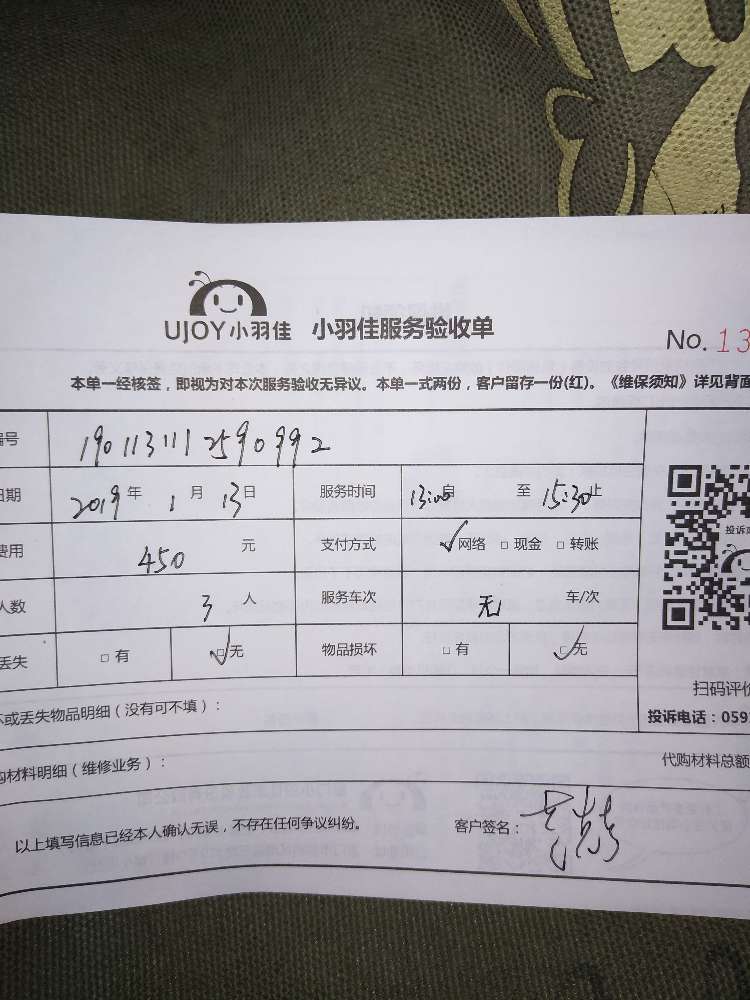 UJOY小羽佳 小羽佳服务验收单
No. 13
本单一经核签，即视为对本次服务验收无异议。本单一式两份，客户留存一份(红)。《维保须知》详见背面
编号 1901131112590992
日期 2019年 1月 13日 服务时间 13:00自 至 15:30止
费用 450 元 支付方式 ✓网络 □ 现金 □ 转账
人数 3 人 服务车次 无 车/次
丢失 □ 有 ☑无 物品损坏 □ 有 ☑无
投诉
扫码评价
坏或丢失物品明细（没有可不填）：
投诉电话：059
购材料明细（维修业务）：
代购材料总额
以上填写信息已经本人确认无误，不存在任何争议纠纷。
客户签名：